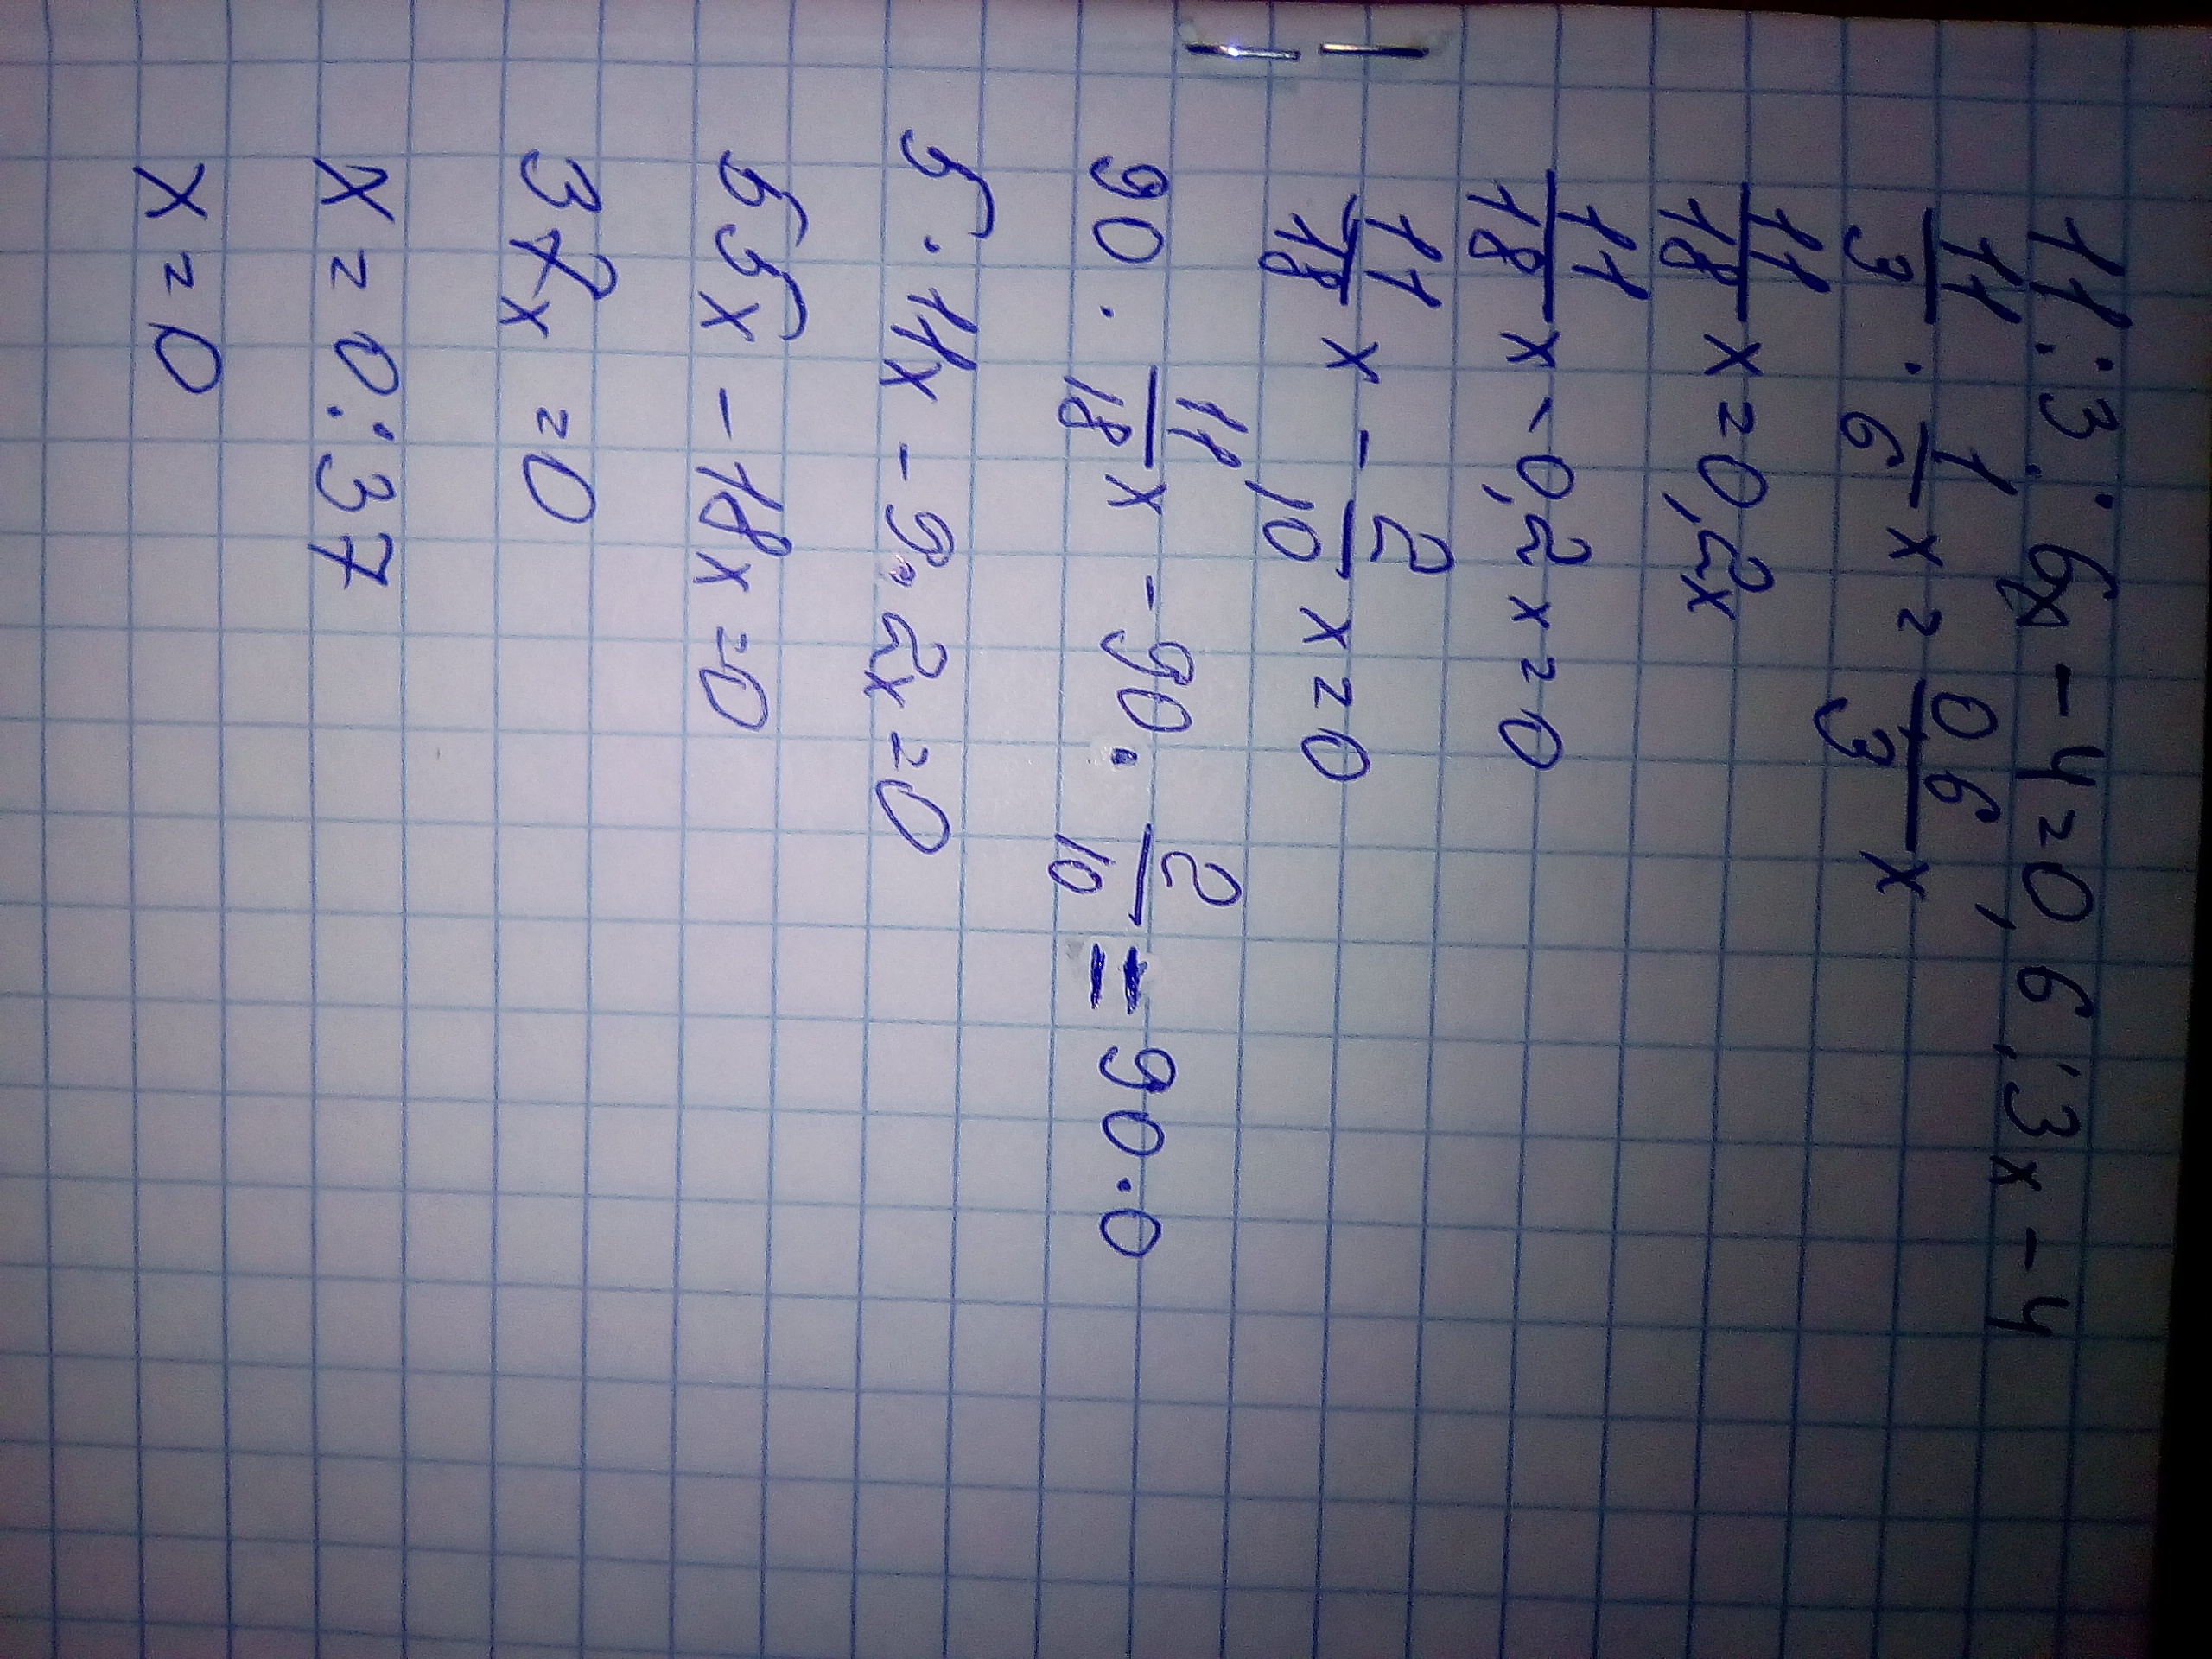 11:3:6x-4=0,6:3x-4
11/3·1/6x=0,6/3x
11/18x=0,2x
11/18x-0,2x=0
11/18x-2/10x=0
90·11/18x-90·2/10=90·0
5·11x-9·2x=0
55x-18x=0
37x=0
x=0:37
x=0